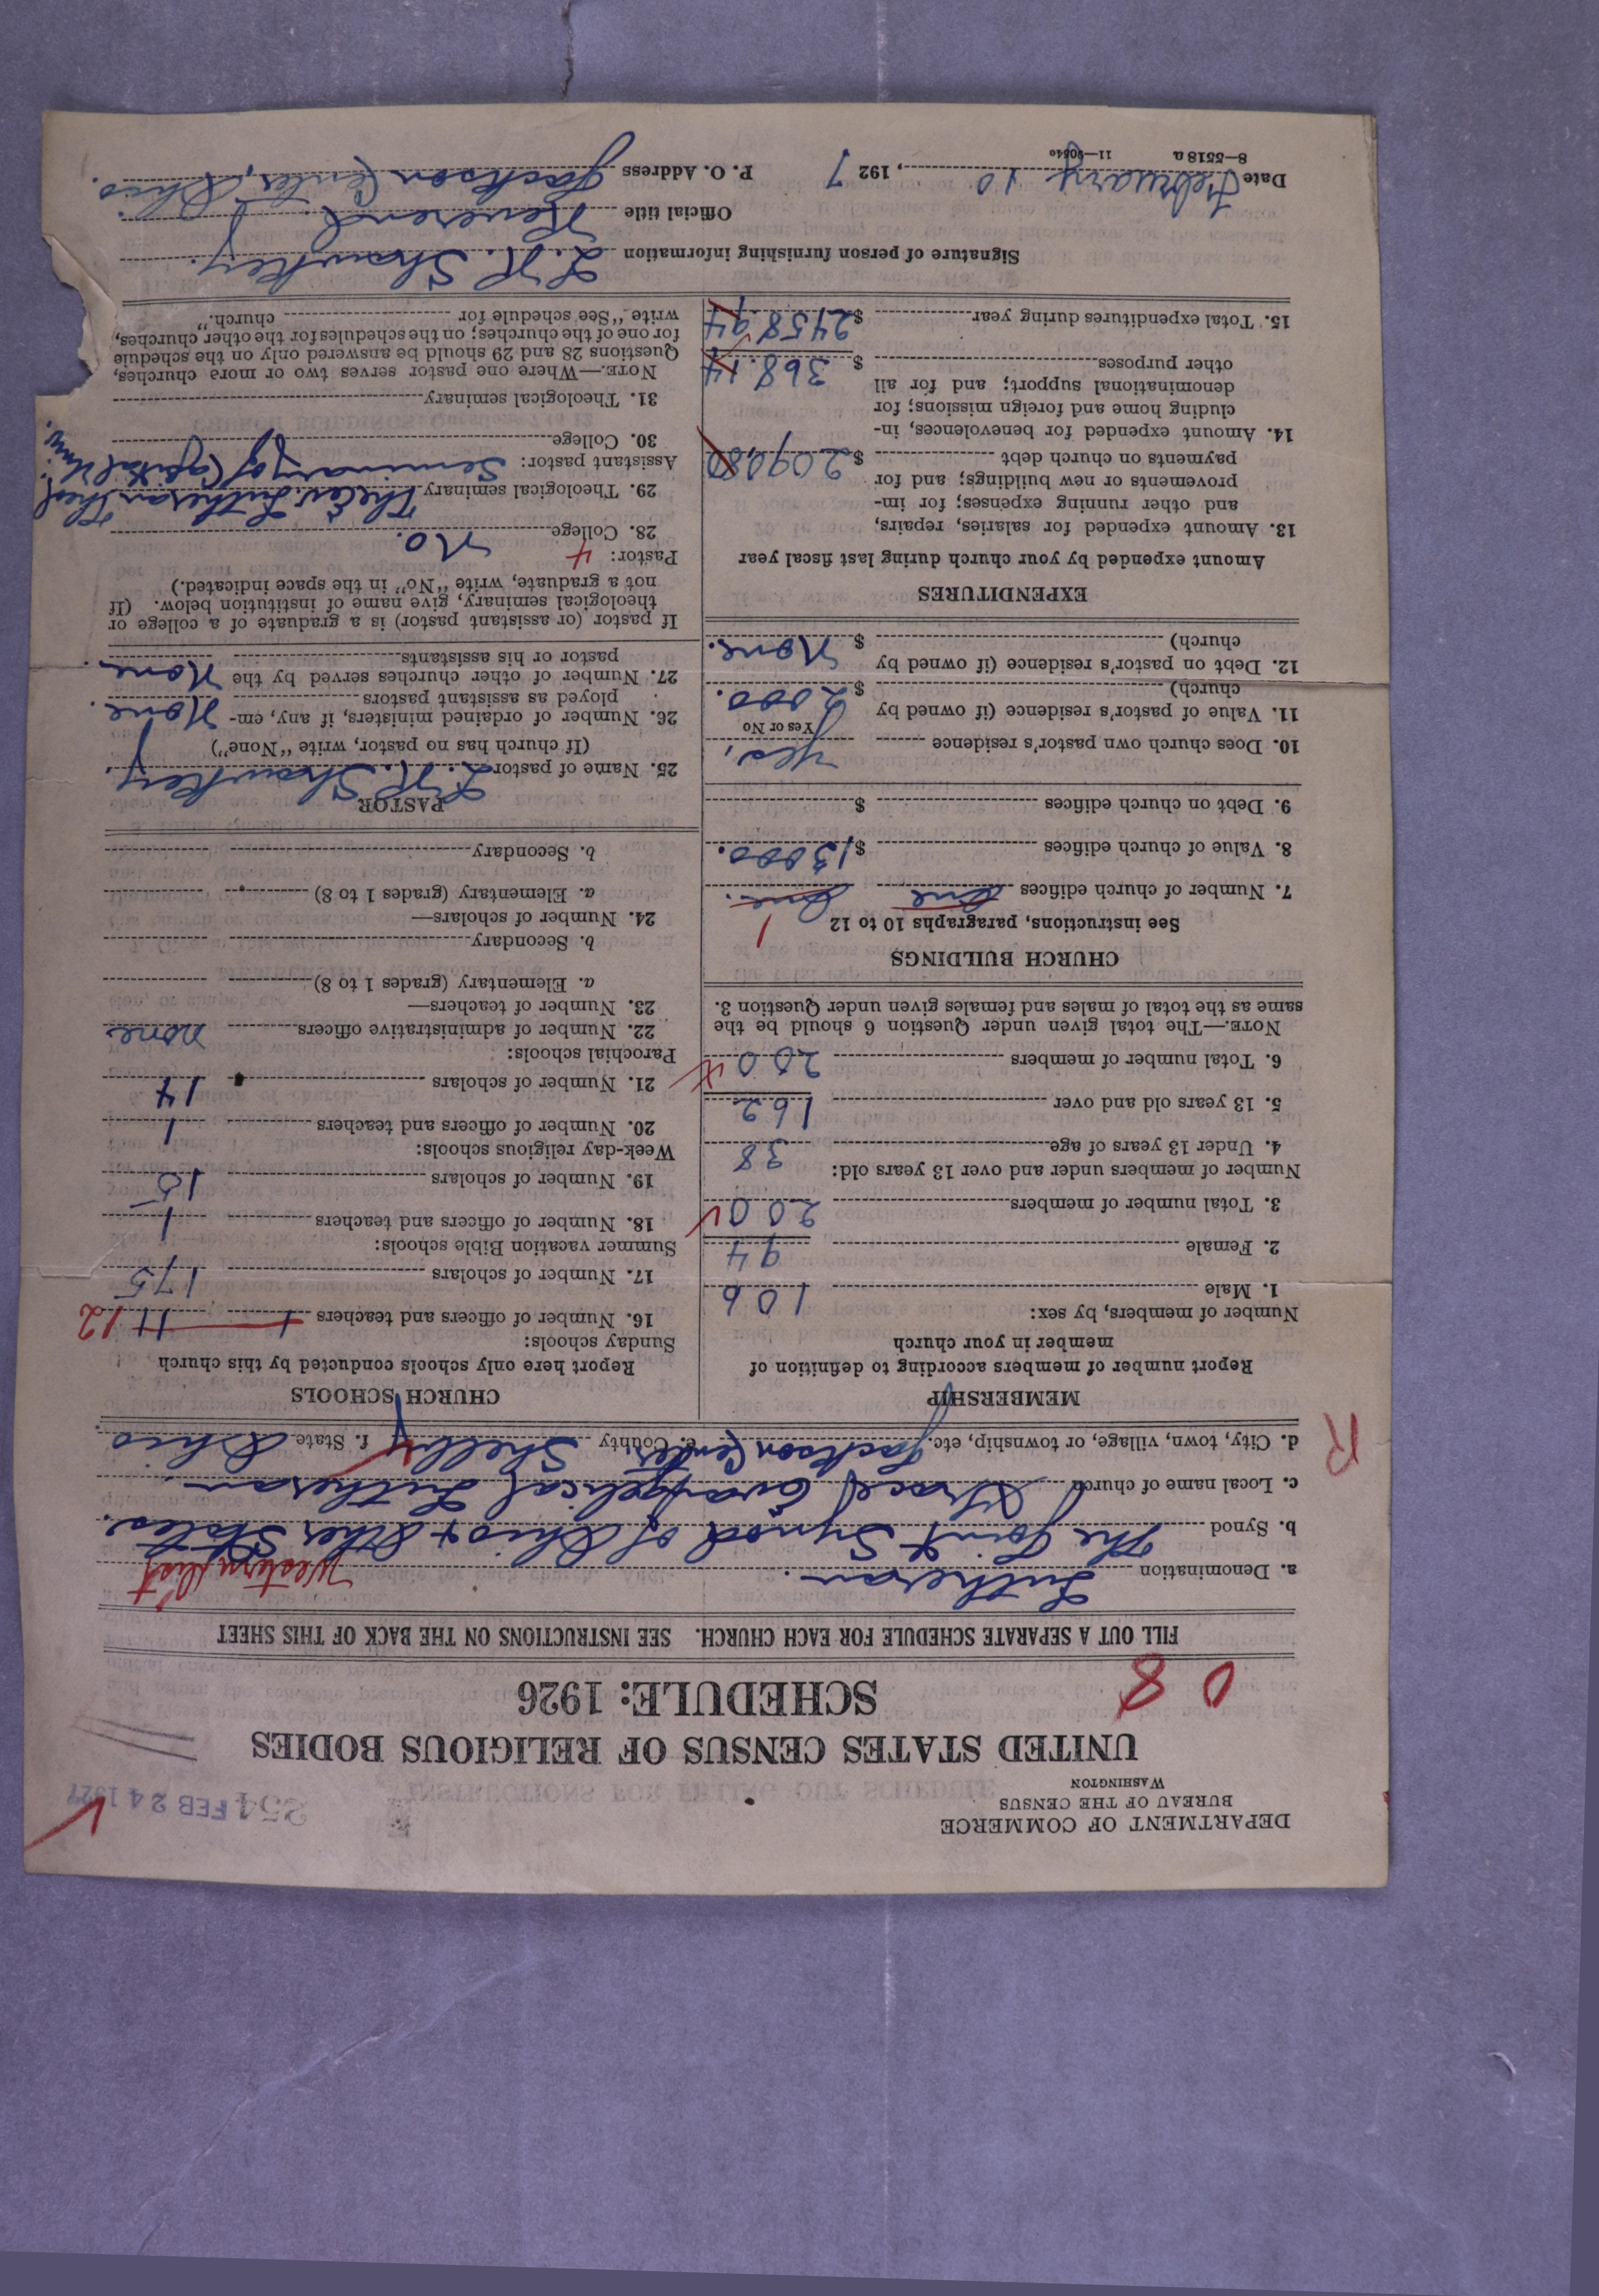 DEPARTMENT OF COMMERCE
BUREAU OF THE CENSUS
WASHINGTON
254 FEB 24 1927
UNITED STATES CENSUS OF RELIGIOUS BODIES
SCHEDULE: 1926
0 8
FILL OUT A SEPARATE SCHEDULE FOR EACH CHURCH. SEE INSTRUCTIONS ON THE BACK OF THIS SHEET
a. Denomination Lutheran. Western Dist
b. Synod The Joint Synod of Ohio & Other States.
c. Local name of church Grace Evangelical Lutheran
d. City, town, village, or township, etc. Jackson Center e. County Shelby f. State Ohio.
R
MEMBERSHIP
Report number of members according to definition of
member in your church
Number of members, by sex:
1. Male 106
2. Female 94
3. Total number of members 200
Number of members under and over 13 years old:
4. Under 13 years of age 38
5. 13 years old and over 162
6. Total number of members 200
NOTE.—The total given under Question 6 should be the
same as the total of males and females given under Question 3.
CHURCH BUILDINGS
See instructions, paragraphs 10 to 12 1
7. Number of church edifices one one.
8. Value of church edifices $13000.
9. Debt on church edifices $
10. Does church own pastor's residence yes,
Yes or No
11. Value of pastor's residence (if owned by
church) $ 2000.
12. Debt on pastor's residence (if owned by
church) $ None.
EXPENDITURES
Amount expended by your church during last fiscal year
13. Amount expended for salaries, repairs,
and other running expenses; for im-
provements or new buildings; and for
payments on church debt $ 2090.80
14. Amount expended for benevolences, in-
cluding home and foreign missions; for
denominational support; and for all
other purposes $ 368.14
15. Total expenditures during year $ 2458.94
CHURCH SCHOOLS
Report here only schools conducted by this church
Sunday schools:
16. Number of officers and teachers 1 11 12
17. Number of scholars 175
Summer vacation Bible schools:
18. Number of officers and teachers 1
19. Number of scholars 15
Week-day religious schools:
20. Number of officers and teachers 1
21. Number of scholars 14
Parochial schools:
22. Number of administrative officers none
23. Number of teachers—
a. Elementary (grades 1 to 8)
b. Secondary
24. Number of scholars—
a. Elementary (grades 1 to 8)
b. Secondary
PASTOR
25. Name of pastor L. H. Shawkey.
(If church has no pastor, write "None")
26. Number of ordained ministers, if any, em-
ployed as assistant pastors None.
27. Number of other churches served by the
pastor or his assistants None.
If pastor (or assistant pastor) is a graduate of a college or
theological seminary, give name of institution below. (If
not a graduate, write "No" in the space indicated.)
Pastor: 4
28. College No.
29. Theological seminary The Ev. Lutheran Theol
Assistant pastor: Seminary of Capital Univ.
30. College
31. Theological seminary
NOTE.—Where one pastor serves two or more churches,
Questions 28 and 29 should be answered only on the schedule
for one of the churches; on the schedules for the other churches,
write "See schedule for church."
Signature of person furnishing information L. H. Shawkey.
Official title Reverend
Date February 10, 1927 P. O. Address Jackson Center, Ohio.
8—5518a 11—9054o